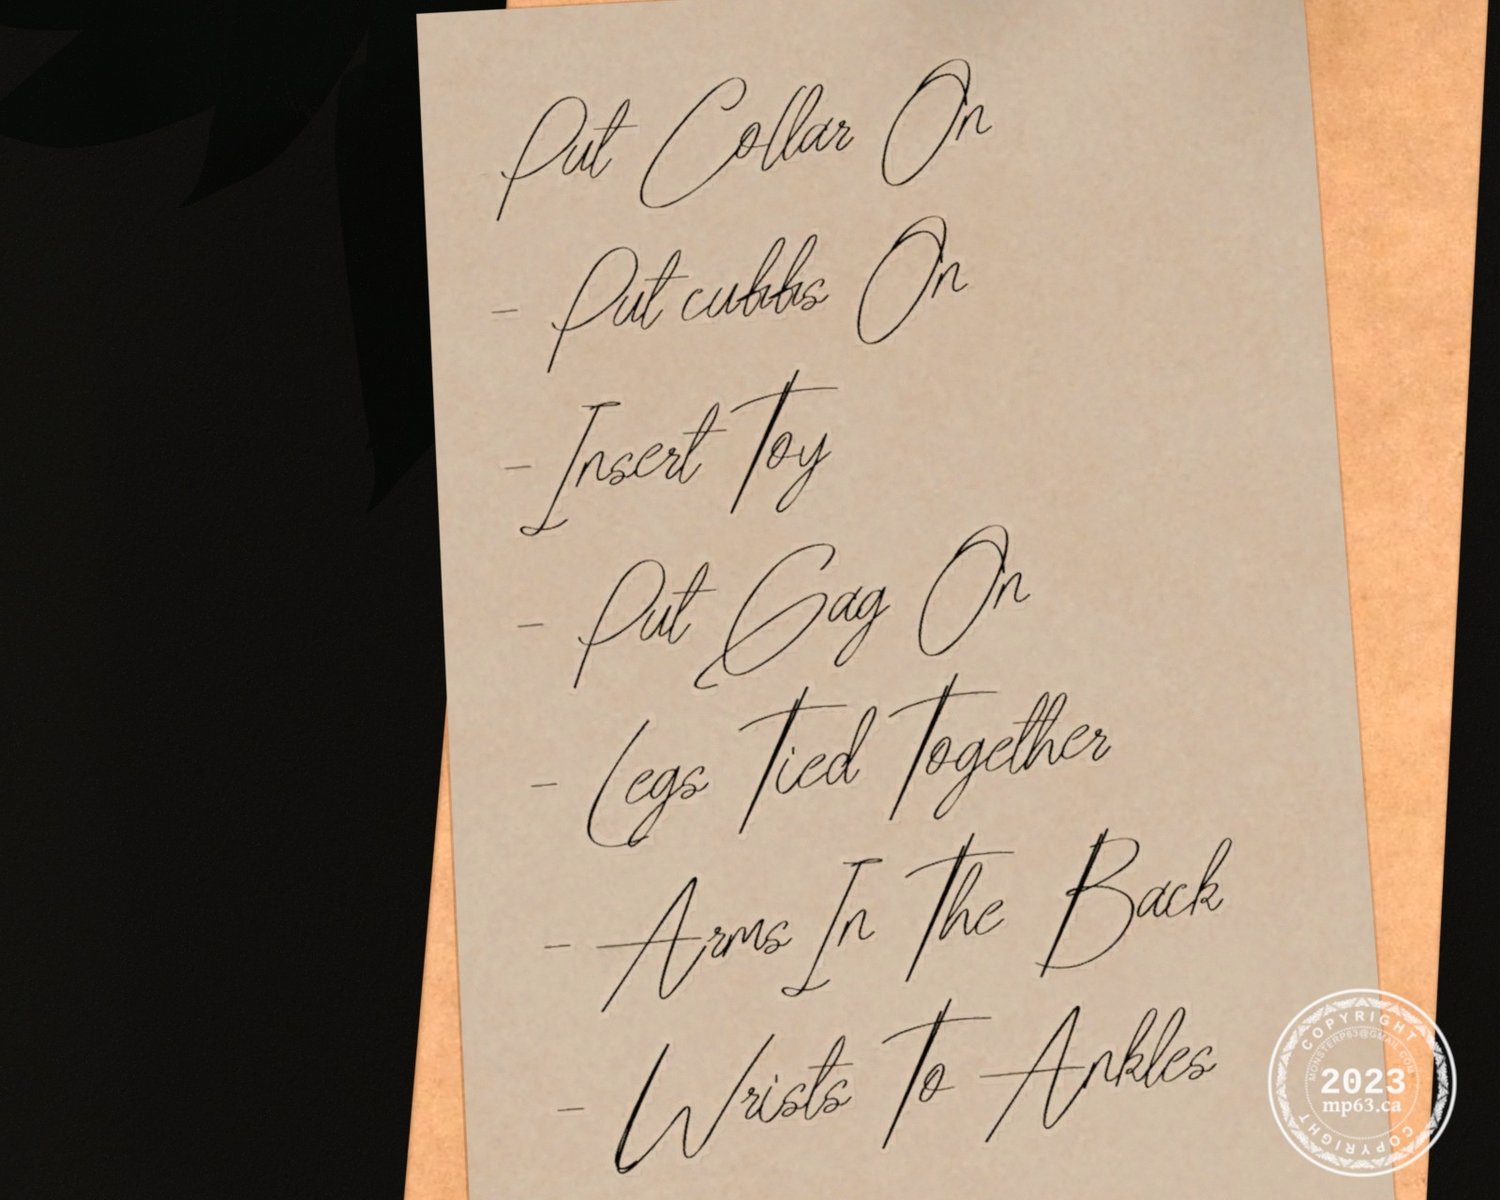 Put Collar On
- Put cubbs On
- Insert Toy
- Put Gag On
- Legs Tied Together
- Arms In The Back
- Wrists To Ankles
COPYRIGHT
MONSTERP63@GMAIL.COM
2023
mp63.ca
COPYRIGHT